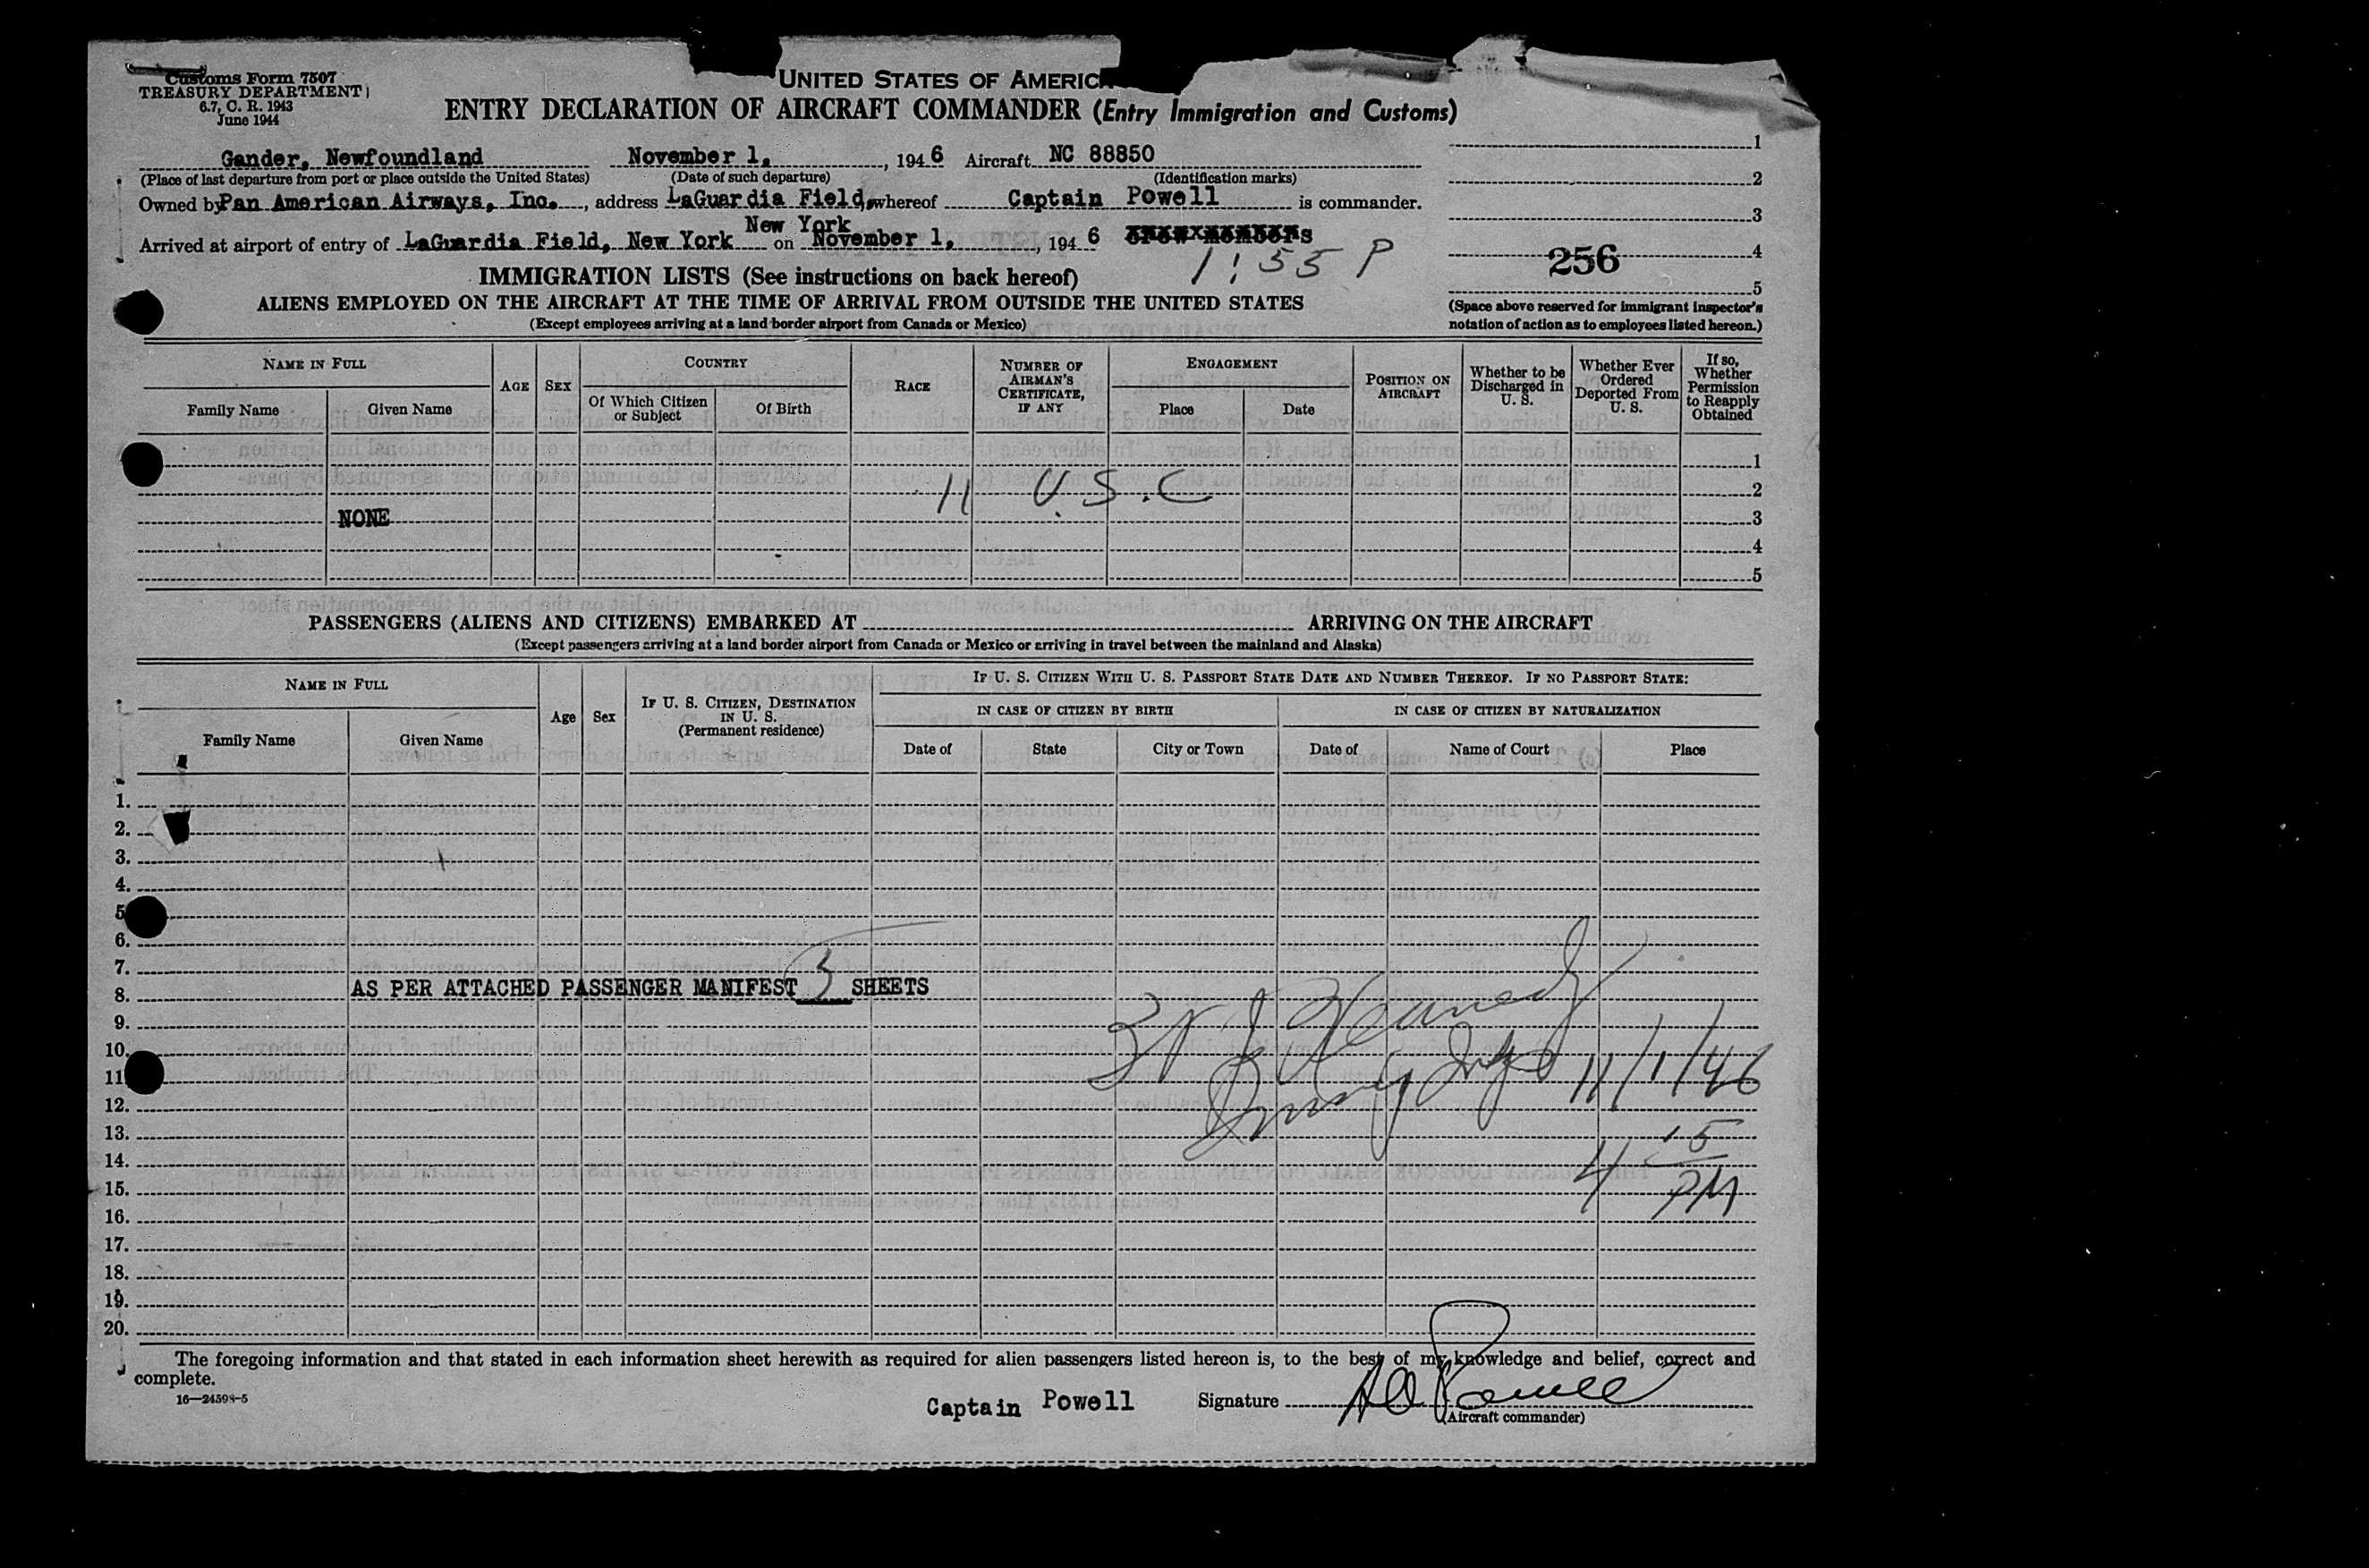 Customs Form 7507
TREASURY DEPARTMENT
6.7, C. R. 1943
June 1944
UNITED STATES OF AMERICA
ENTRY DECLARATION OF AIRCRAFT COMMANDER (Entry Immigration and Customs)
Gander, Newfoundland November 1, , 194 6 Aircraft NC 88850
(Place of last departure from port or place outside the United States) (Date of such departure) (Identification marks)
Owned by Pan American Airways, Inc. , address LaGuardia Field, whereof Captain Powell is commander.
New York
Arrived at airport of entry of LaGuardia Field, New York on November 1, , 194 6
1:55 P
1
2
3
4
5
256
(Space above reserved for immigrant inspector's
notation of action as to employees listed hereon.)
IMMIGRATION LISTS (See instructions on back hereof)
ALIENS EMPLOYED ON THE AIRCRAFT AT THE TIME OF ARRIVAL FROM OUTSIDE THE UNITED STATES
(Except employees arriving at a land border airport from Canada or Mexico)
NAME IN FULL
Family Name Given Name
AGE SEX
COUNTRY
Of Which Citizen or Subject Of Birth
RACE
NUMBER OF AIRMAN'S CERTIFICATE, IF ANY
ENGAGEMENT
Place Date
POSITION ON AIRCRAFT
Whether to be Discharged in U. S.
Whether Ever Ordered Deported From U. S.
If so, Whether Permission to Reapply Obtained
1
11 U.S.C 2
NONE 3
4
5
PASSENGERS (ALIENS AND CITIZENS) EMBARKED AT ARRIVING ON THE AIRCRAFT
(Except passengers arriving at a land border airport from Canada or Mexico or arriving in travel between the mainland and Alaska)
NAME IN FULL
Family Name Given Name
Age Sex
IF U. S. CITIZEN, DESTINATION IN U. S.
(Permanent residence)
IF U. S. CITIZEN WITH U. S. PASSPORT STATE DATE AND NUMBER THEREOF. IF NO PASSPORT STATE:
IN CASE OF CITIZEN BY BIRTH IN CASE OF CITIZEN BY NATURALIZATION
Date of State City or Town Date of Name of Court Place
1.
2.
3.
4.
5
6.
7.
8. AS PER ATTACHED PASSENGER MANIFEST 3 SHEETS
9.
10.
11
12.
11/1/46
13.
14.
4 15 PM
15.
16.
17.
18.
19.
20.
The foregoing information and that stated in each information sheet herewith as required for alien passengers listed hereon is, to the best of my knowledge and belief, correct and
complete.
16—24598-5
Captain Powell Signature
(Aircraft commander)